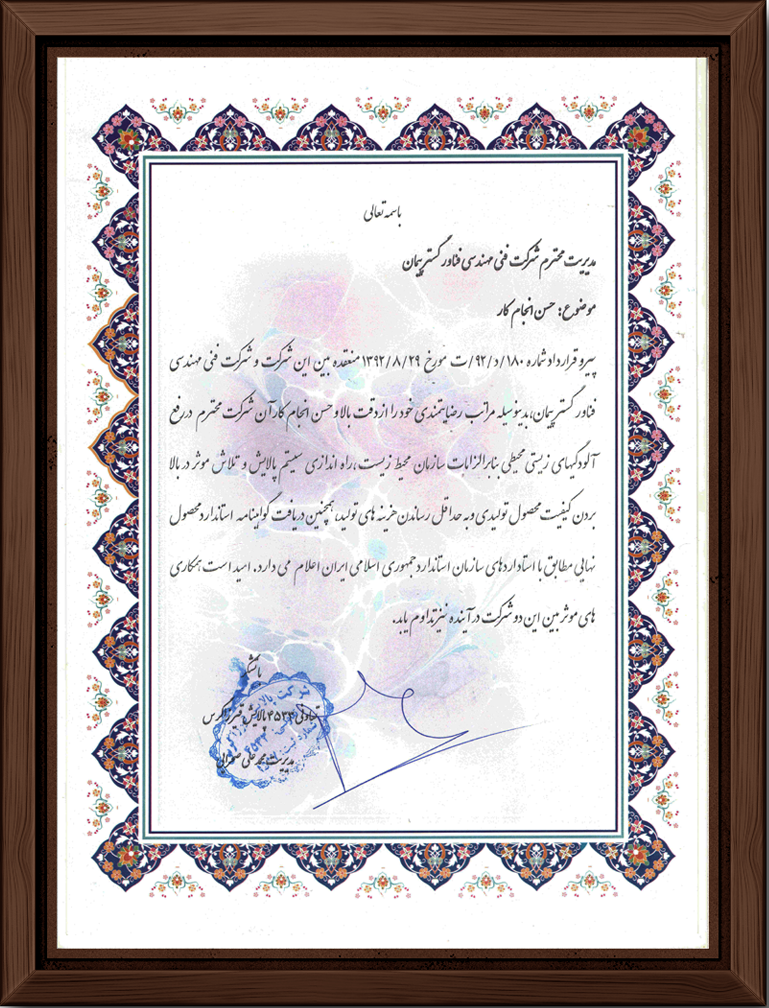 باسمه تعالی
مدیریت محترم شرکت فنی مهندسی فناور گستر پیمان
موضوع: حسن انجام کار
پیرو قرارداد شماره ۱۸۰/د/۹۲/ت مورخ ۱۳۹۲/۸/۲۹ منعقده بین این شرکت و شرکت فنی مهندسی
فناور گستر پیمان، بدینوسیله مراتب رضایتمندی خود را از دقت بالا و حسن انجام کار آن شرکت محترم در رفع
آلودگیهای زیستی محیطی بنابر الزامات سازمان محیط زیست، راه اندازی سیستم پالایش و تلاش موثر در بالا
بردن کیفیت محصول تولیدی و به حداقل رساندن هزینه های تولید، همچنین دریافت گواهینامه استاندارد محصول
نهایی مطابق با استاداردهای سازمان استاندارد جمهوری اسلامی ایران اعلام می دارد. امید است همکاری
های موثر بین این دو شرکت در آینده نیز تداوم یابد.
با تشکر
تعاونی ۴۵۳۳ پالایش
مدیریت محمد علی